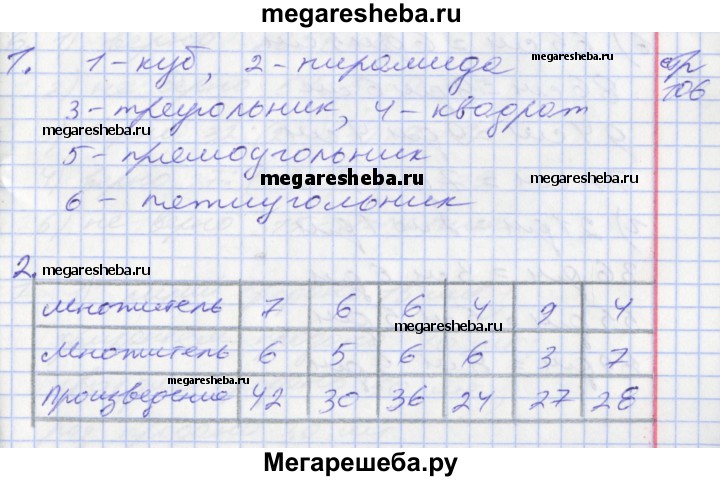 megaresheba.ru
1. 1 - куб, 2 - пирамида
megaresheba.ru
стр 106
3 - треугольник, 4 - квадрат
megaresheba.ru
5 - прямоугольник
megaresheba.ru
6 - пятиугольник
2. megaresheba.ru
Множитель 7 6 6 4 9 4
megaresheba.ru
Множитель 6 5 6 6 3 7
megaresheba.ru
Произведение 42 30 36 24 27 28
Мегарешеба.ру